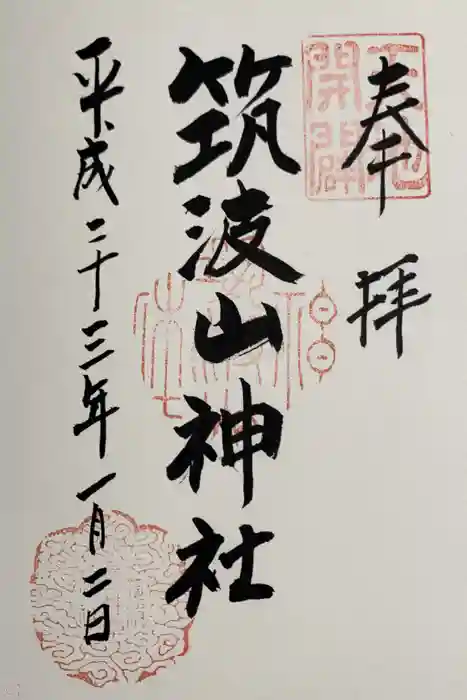 奉拝
天地開闢
筑波山神社
平成二十三年一月二日